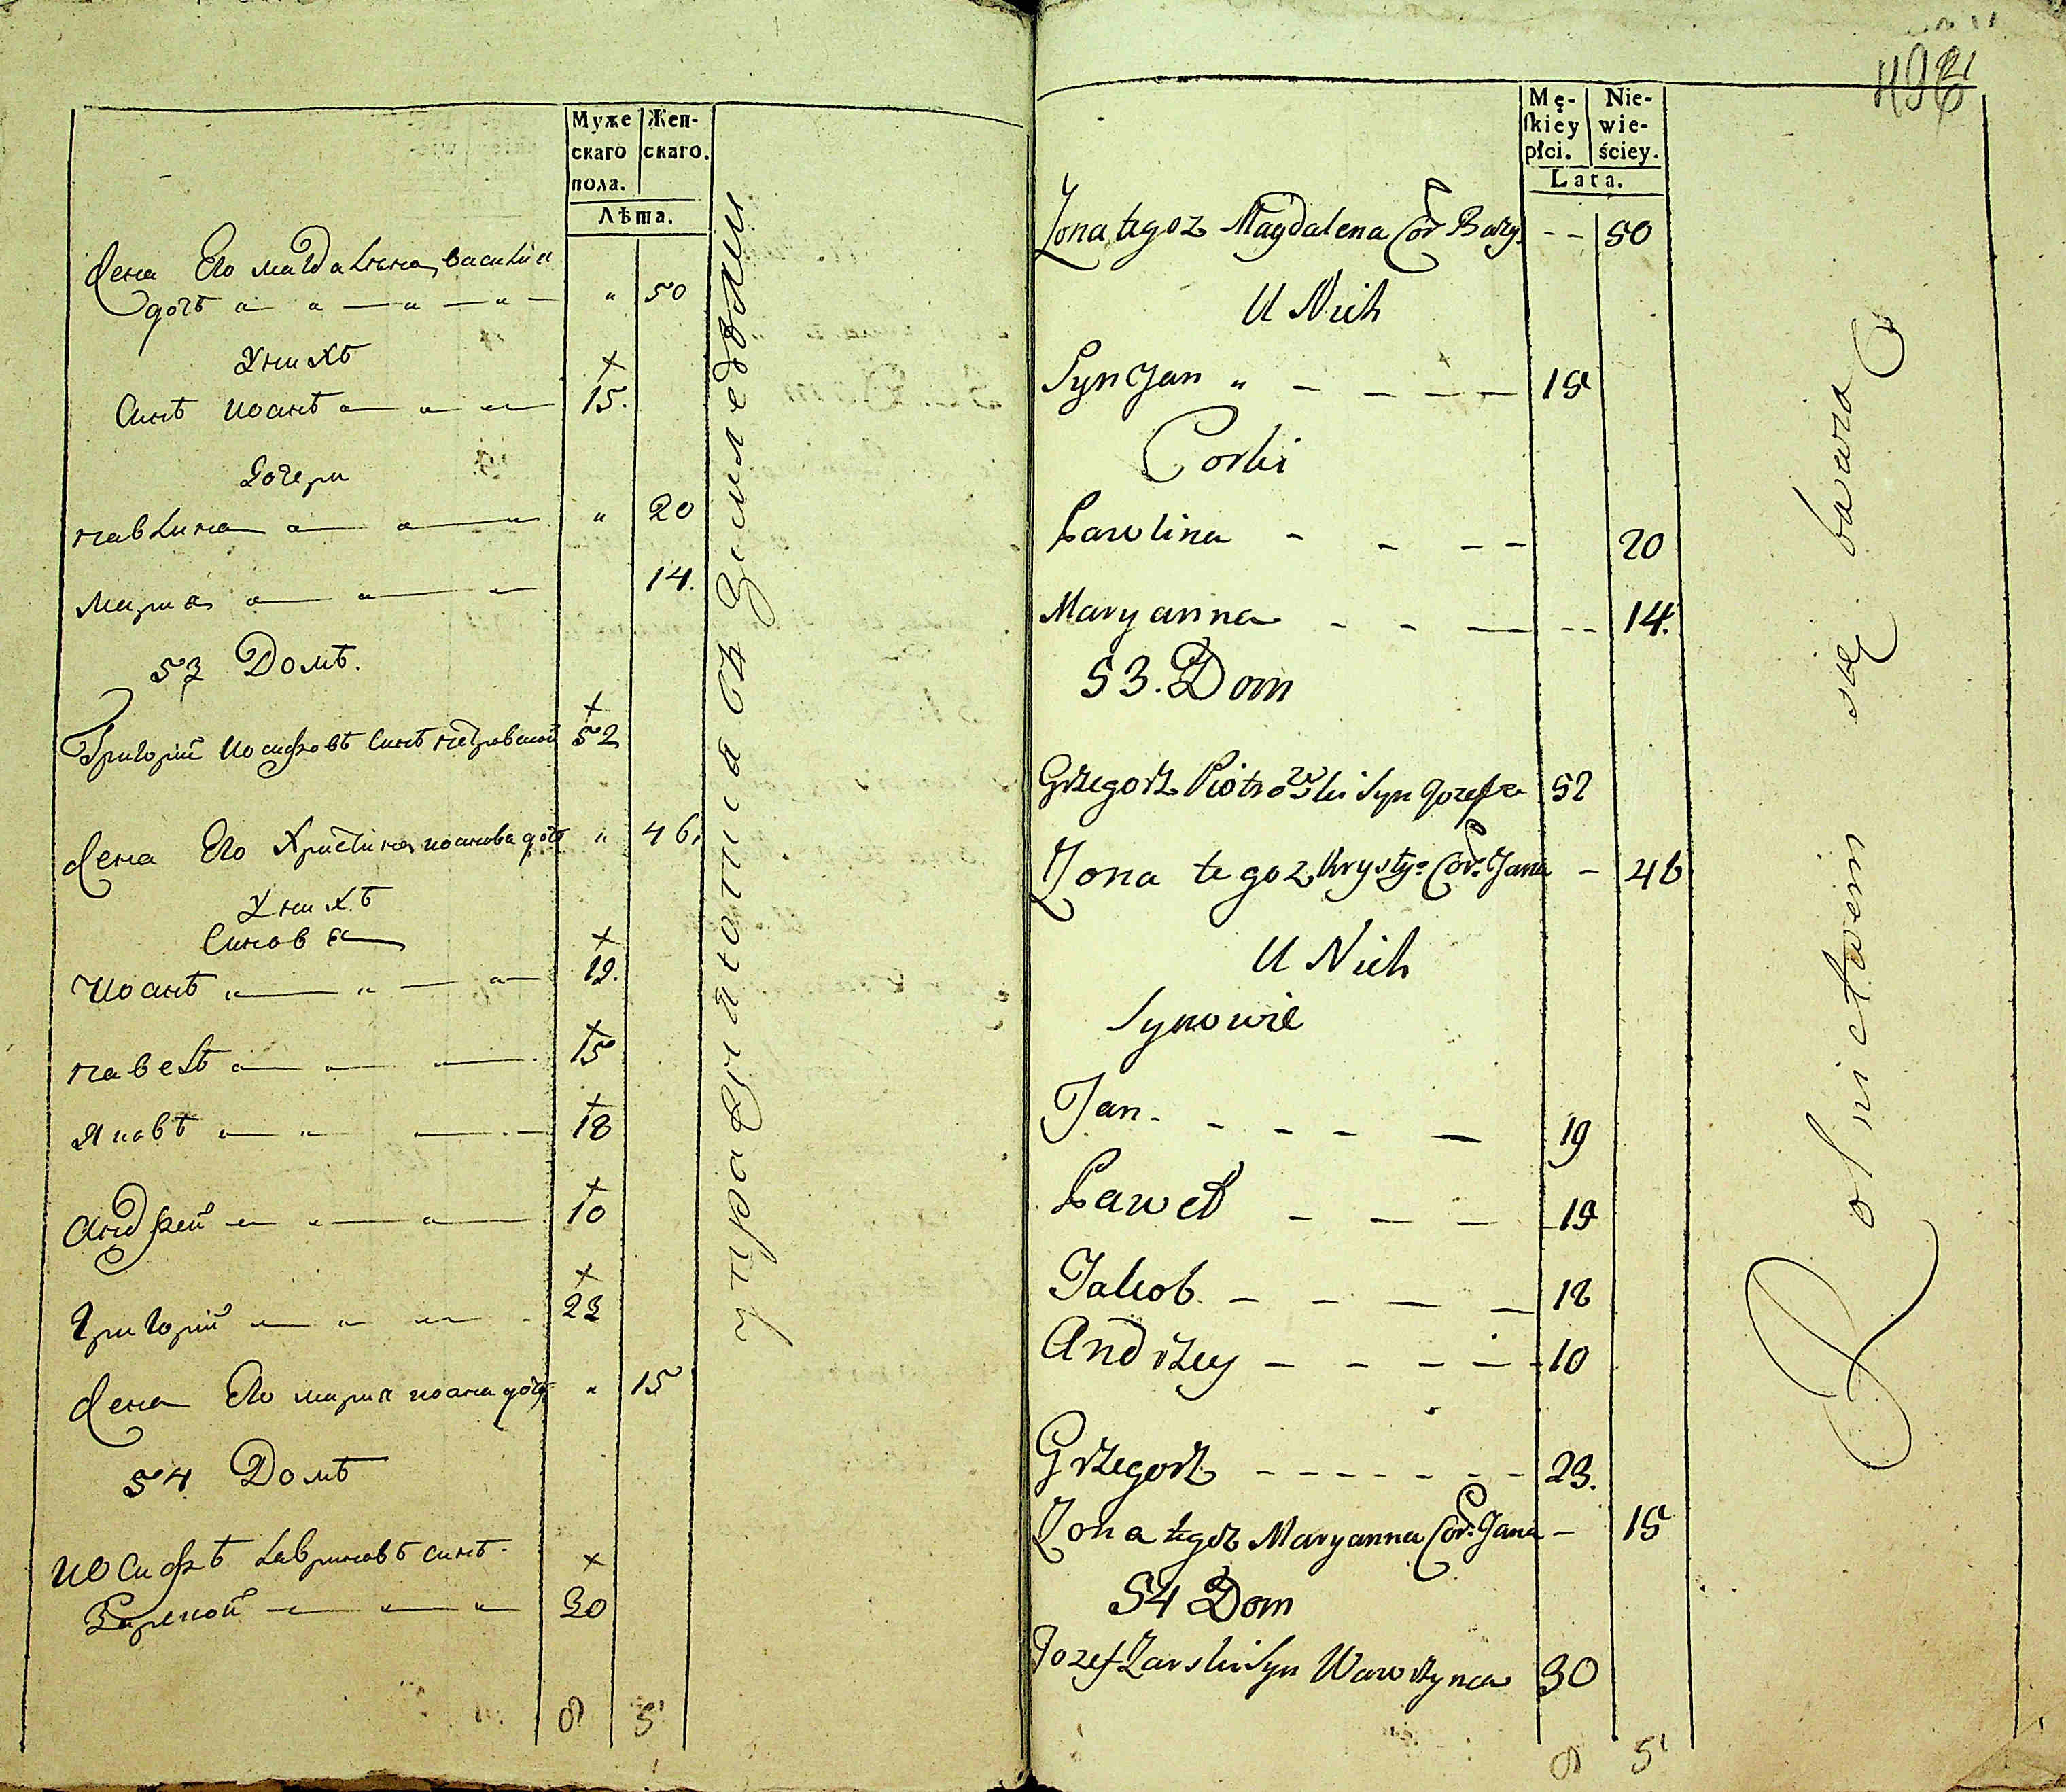 Муже
скаго
пола.
Жен-
скаго.
Лѣта.
Жена Его Магдалена, василия
дочь " 50
У нихъ
Синъ Иоанъ 15.
Дочери
павлина " 20
Мариа 14.
53 Домъ.
Григорий Иосифовъ Синъ петровский 52
Жена Его Христина иоанова дочь " 46.
У нихъ
Синовя
Иоанъ 19.
павелъ 15
Яковъ 18
Андрей 10
Григорий 23
Жена Его мариа иоана дочь " 15
54 Домъ
Иосифъ Лавриновъ синъ
Зарской 30
8 5
Mę-
ſkiey
płci.
Nie-
wie-
ściey.
Lata.
Zona tegoz Magdalena Cor Bazy. 50
U Nich
Syn Jan " 15
Corki
Pawlina 20
Maryanna 14.
53. Dom
Grzegorz Piotrowski Syn Jozefa 52
Zona tegoz Krysty: Cor: Jana 46
U Nich
Synowie
Jan 19
Paweł 19
Jakob 18
Andrzey 10
Grzegorz 23.
Zona tegoz Maryanna Cor: Jana 15
54 Dom
Jozef Zarski Syn Wawrzynca 30
8 5
Rolnictwem się bawią